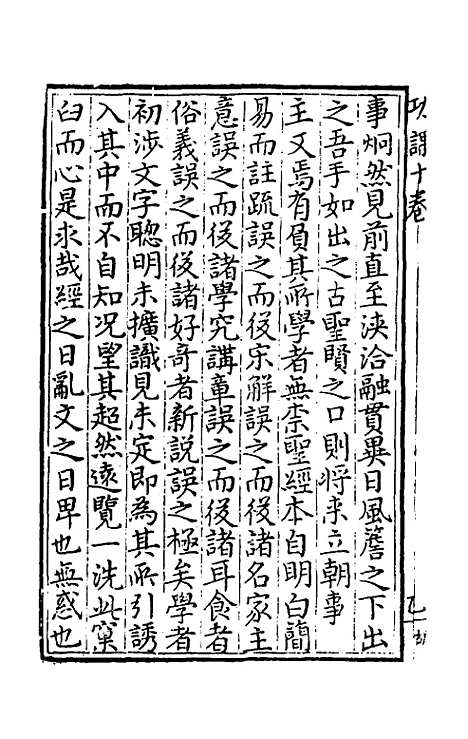 事炯然見前直至浹洽融貫異日風簷之下出
之吾手如出之古聖賢之口則將来立朝事
主又焉有負其所學者無柰聖經本自明白簡
易而註疏誤之而後宋解誤之而後諸名家主
意誤之而後諸學究講章誤之而後諸耳食者
俗義誤之而後諸好奇者新説誤之極矣學者
初涉文字聰明未擴識見未定即為其所引誘
入其中而不自知况望其超然遠覽一洗此窠
臼而心是求哉經之日亂文之日卑也無惑也
十卷